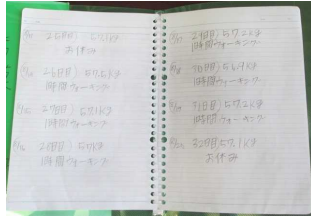 25日目) 57.1Kg
お休み
26日目) 57.5Kg
1時間ウォーキング
27日目) 57.1Kg
1時間ウォーキング
28日目) 57Kg
1時間ウォーキング
29日目) 57.2Kg
1時間ウォーキング
30日目) 56.9Kg
1時間ウォーキング
31日目) 57.2Kg
1時間ウォーキング
32日目) 57.1Kg
お休み